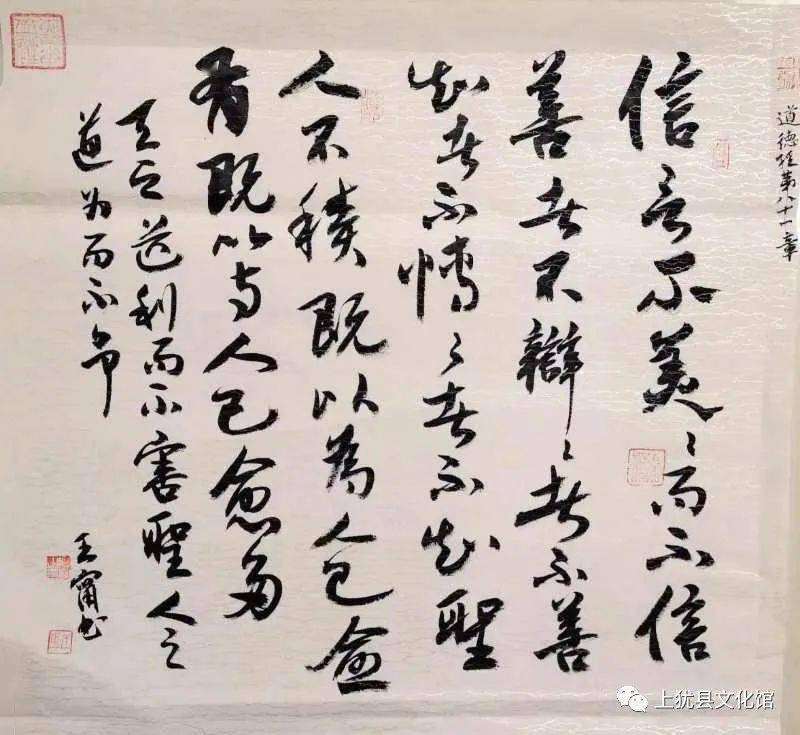 道德经第八十一章
信言不美々而不信
善者不辯々者不善
知者不博々者不知聖
人不積既以為人己愈
有既以与人己愈多
天之道利而不害聖人之
道为而不争
王甯书
上犹县文化馆